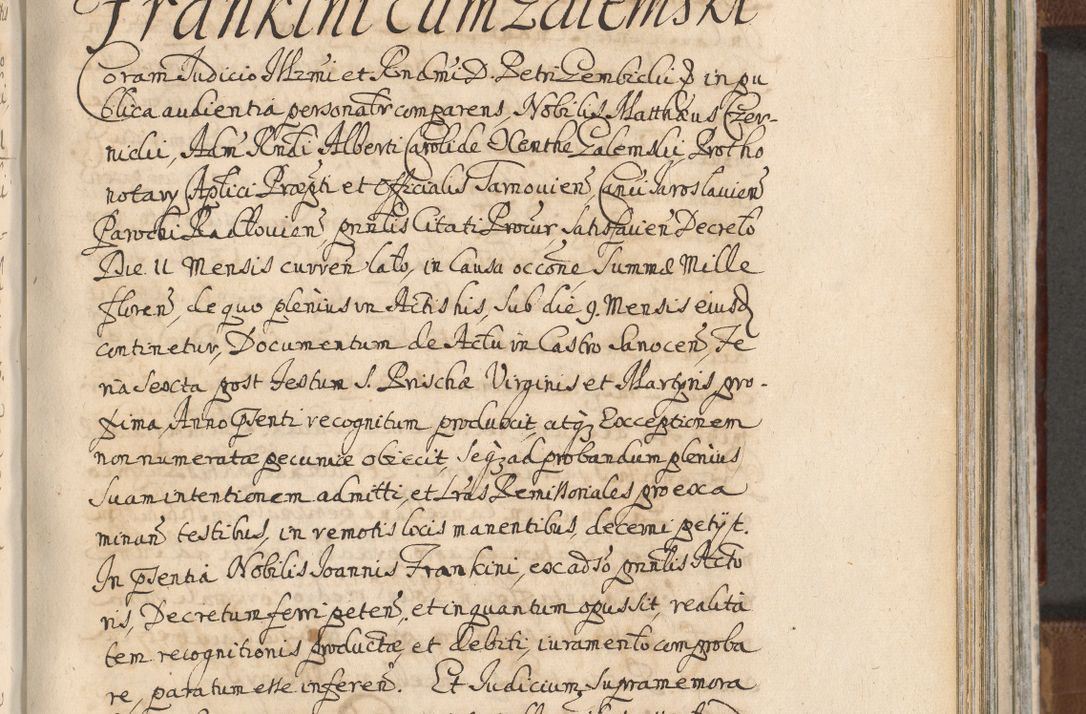 Frankini cum Zalemski
Coram Iudicio Illrmi et Rndmi D. Petri Gembicki D in pu
blica audientia personalr comparens, Nobilis Matthæus Czer-
nicki, Adm Rndi Alberti Caroli de Xenthe Zalemski, Protho
notary Aplici Præpti et Officialis Tarnovien Canci Iaroslavien
Parochi Radlovien, pnntis Citati Procur, satisfacien Decreto
Die 11 Mensis curren lato, in Causa occone Summæ Mille
floren, de quo plenius in Actis his, sub die 9. Mensis eiusd
continetur, Documentum de Actu in Castro Sanocen, Fe
ria Sexta post Festum S. Prischæ Virginis et Martyris pro-
xima, Anno pnsenti recognitum produxit, atq Exceptionem
non numeratæ pecuniæ obiecit, seq ad probandum plenius
suam intentionem admitti, et Lras Remissoriales pro exa
minan testibus, in remotis locis manentibus, decerni petijt.
In psentia Nobilis Ioannis Frankini, ex adso pnntis Acto
ris, Decretum ferri peten, et in quantum opus sit, realita
tem recognitionis productæ, et debiti, iuramento comproba
re, paratum esse inferen. Et Iudicium, supra memora